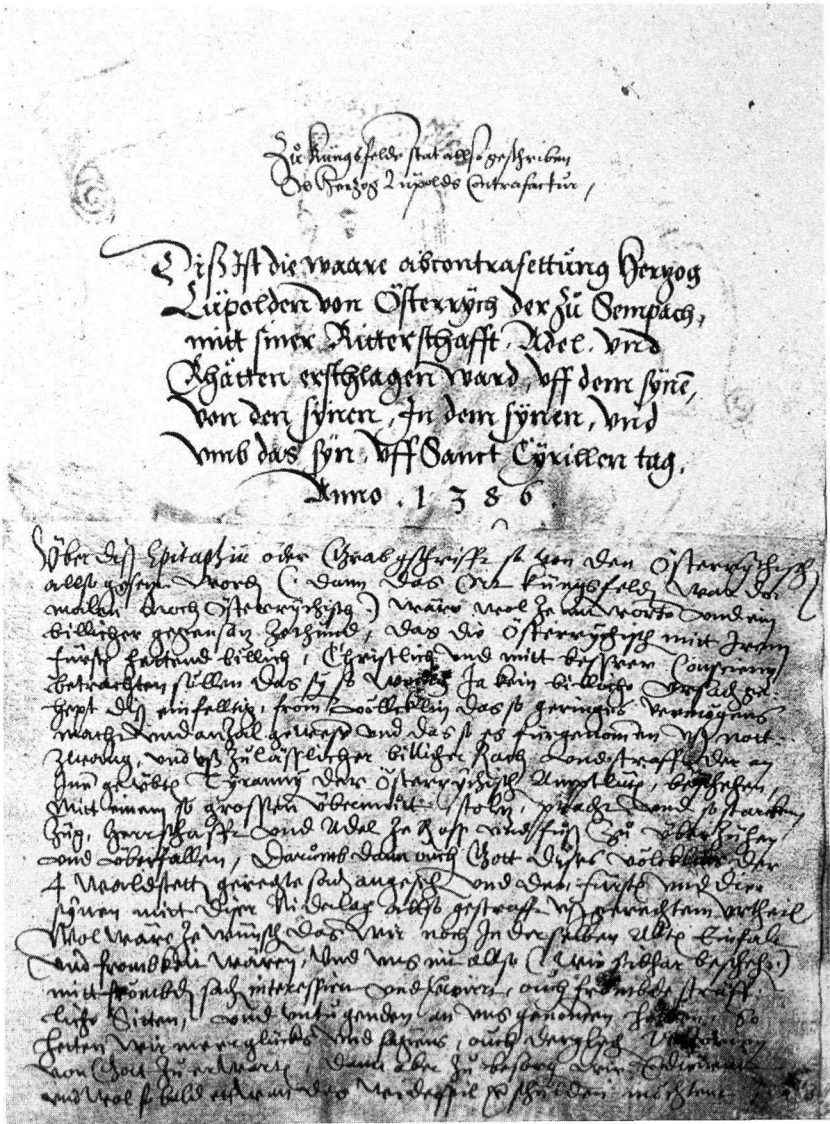 Zů Küngsfelde stat allso geschriben
By Hertzog Lüpolds Contrafactur,
Diß Ist die waare abcontrafettung Hertzog
Lüpolden von Österrÿch der zů Sempach,
mitt siner Ritterschafft, Adel, vnd
Rhätten erschlagen ward, vff dem sÿnē,
von den sÿnen, In dem sÿnen, vnd
vmb das sÿn, vff Sanct Cÿrillen tag,
Anno . 1 3 8 6
Über diß Epitaphiū oder Grabgschrifft so von den Österrÿchisch
allso gesetzt worden (dann das Ort Küngsfelden was der
malen noch Österrÿchisch) wäre wol ze antworten vnd ein
billicher gegensatz zethund, das die Österrÿchisch mitt Irem
fürsten hettend billich, Christlich vnd mitt besserer Conscientz
betrachten söllen das sÿ so Ja kein billiche vrsach ge-
hept diß einfelltig, from völcklin das so geringes vermögens
macht vnd anzal gewesen vnd das so es fürgenomen vß nott-
zwang, vnd vß zůlässlicher billicher Rach Landtstraff der an
Inen geübten Tÿranny der Österrÿchisch Amptlüten, beschehen,
Mitt einem so grossen übermůtt, stoltz, pracht vnd so starcken
Züg, herrschafft vnd Adel ze Ross vnd fůß zů überzühen
vnd überfallen, Darumb dann ouch Gott dises völcklins der
4 Waldstetten gerechte sach angesehen vnd den fürsten vnd die
sÿnen mitt diser Niderlag allso gestrafft vß gerechtem vrtheil
Wol wäre ze wünschen das wir noch In derselben Allten Einfalt
vnd frombkeit wären, Vnd vns nit allso (wie sichtbar beschicht)
mitt frömbden sachen interessiert vnd ouch frömbde sträff-
liche Sitten, vnd vntugenden an vns genomen hetten, So
hetten wir meer glücks vnd sägens, ouch derglych Victorien
von Gott zů erwarten, dann aber zů besorgen
vnd wol so bald ettwan das widerspil beschulden möchtent